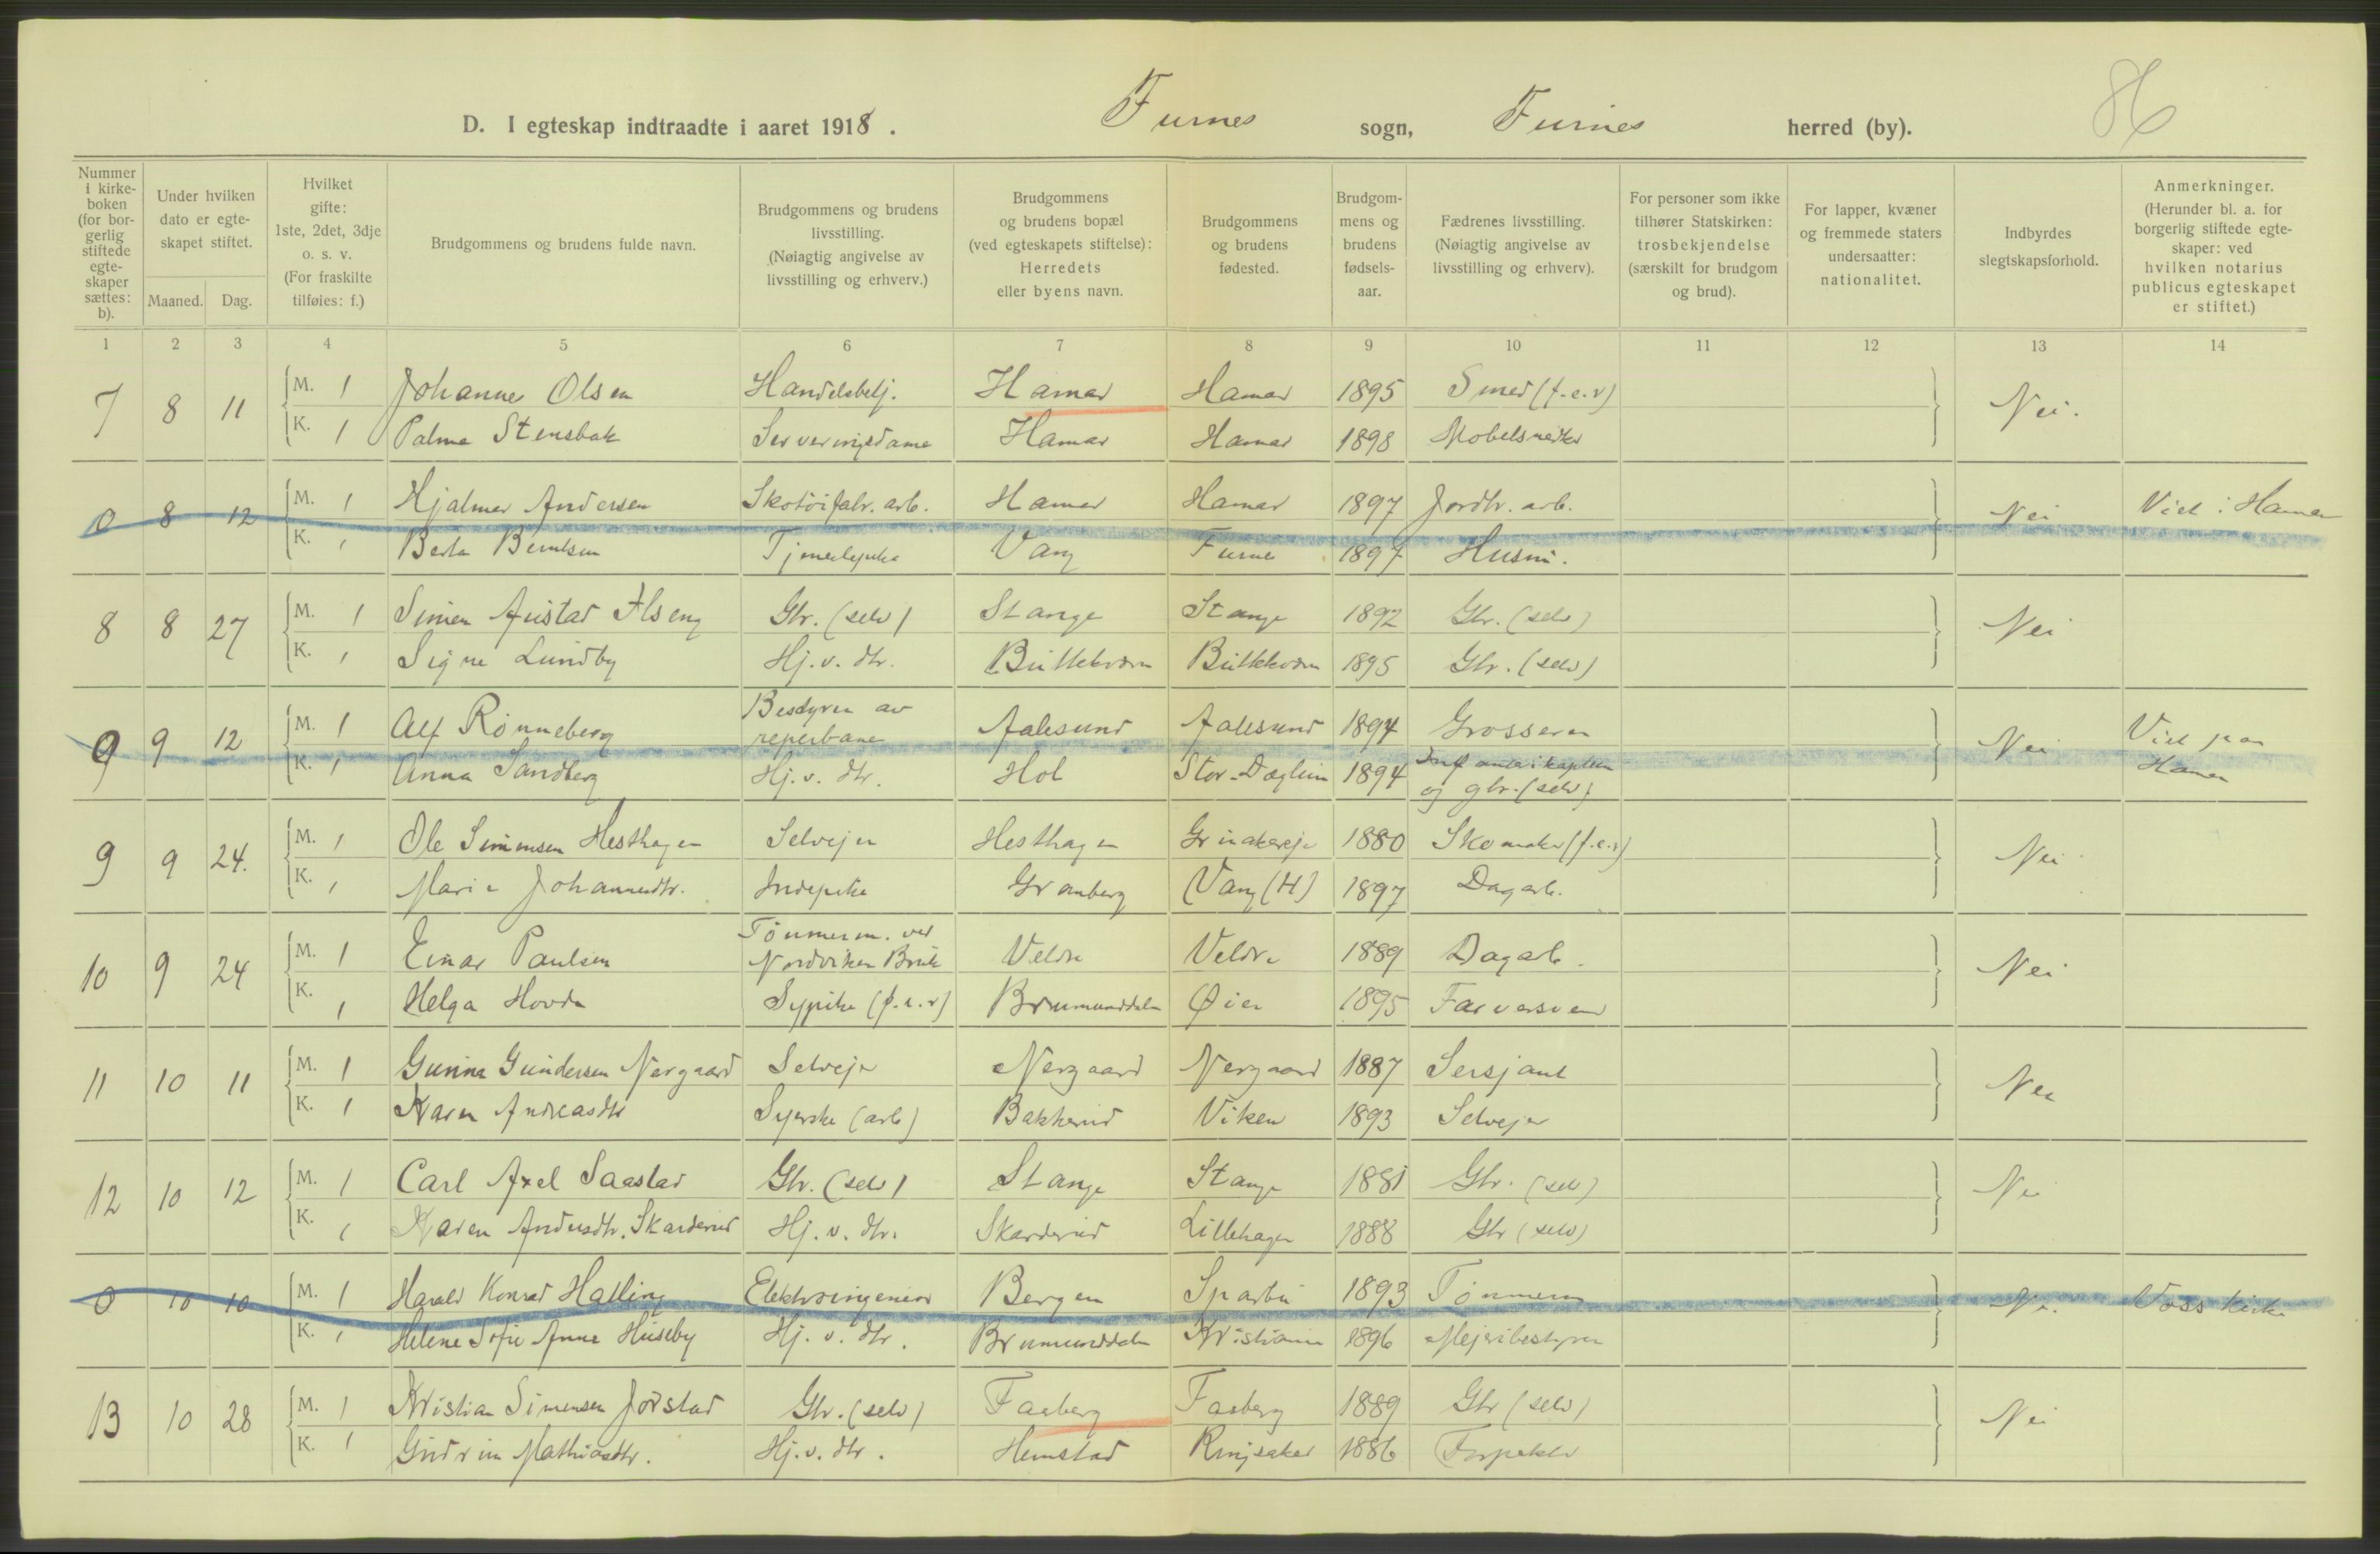 D. I egteskap indtraadte i aaret 1918. Furnes sogn, Furnes herred (by). 86
Nummer i kirke-boken (for bor-gerlig stiftede egte-skaper sættes: b).
Under hvilken dato er egte-skapet stiftet.
Maaned. Dag.
Hvilket gifte: 1ste, 2det, 3dje o. s. v. (For fraskilte tilføies: f.)
Brudgommens og brudens fulde navn.
Brudgommens og brudens livsstilling. (Nøiagtig angivelse av livsstilling og erhverv.)
Brudgommens og brudens bopæl (ved egteskapets stiftelse): Herredets eller byens navn.
Brudgommens og brudens fødested.
Brudgom-mens og brudens fødsels-aar.
Fædrenes livsstilling. (Nøiagtig angivelse av livsstilling og erhverv).
For personer som ikke tilhører Statskirken: trosbekjendelse (særskilt for brudgom og brud).
For lapper, kvæner og fremmede staters undersaatter: nationalitet.
Indbyrdes slegtskapsforhold.
Anmerkninger. (Herunder bl. a. for borgerlig stiftede egte-skaper: ved hvilken notarius publicus egteskapet er stiftet.)
1 2 3 4 5 6 7 8 9 10 11 12 13 14
7 8 11 M. 1 Johannes Olsen Handelsbetj. Hamar Hamar 1895 Smed (f.e.v) Nei.
K. 1 Palma Stensbak Serveringsdame Hamar Hamar 1898 Møbelsnedker
0 8 12 M. 1 Hjalmar Andersen Skotöifabr. arb. Hamar Hamar 1897 Jordbr. arb. Nei Viet i Hamar
K. 1 Berta Berntsen Tjenestepike Vang Furnes 1897 Husm.
8 8 27 M. 1 Simen Austad Ilseng Gbr. (selv) Stange Stange 1892 Gbr. (selv) Nei
K. 1 Signe Lundby Hj. v. dtr. 1895 Gbr. (selv)
0 9 12 M. 1 Alf Rönneberg Bestyrer av reperbane Aalesund Aalesund 1894 Grosserer Nei Viet paa Hamar
K. 1 Anna Sandberg Hj. v. dtr. Hol Stor-Dæglum 1894 og gbr. (selv)
9 9 24. M. 1 Ole Simensen Hesthagen Selvejer Hesthagen 1880 Skomaker (f.e.v) Nei
K. 1 Marie Johannesdtr. Indepike Granberg Vang (H) 1897 Dagarb.
10 9 24 M. 1 Einar Paulsen Tömmerm. ved Nordviken Bruk Veldre Veldre 1889 Dagarb. Nei
K. 1 Helga Hovde Sypike (f.e.v) Brumunddalen Øier 1895 Farversvend
11 10 11 M. 1 Gunnar Gundersen Nergaard Selvejer Nergaard Nergaard 1887 Sersjant Nei
K. 1 Karen Andreasdtr Syerske (arb) Bakkerud Viken 1893 Selvejer
12 10 12 M. 1 Carl Axel Saastad Gbr. (selv) Stange Stange 1881 Gbr. (selv) Nei
K. 1 Karen Andersdtr. Skarderud Hj. v. dtr. Skarderud Lillehagen 1888 Gbr (selv)
0 10 10 M. 1 Harald Konrad Halling Elektroingeniør Bergen Sparbu 1893 Tömmerm Nei. Voss kirke
K. 1 Helene Sofie Anna Huseby Hj. v. dtr. Brumunddalen Kristiania 1896 Mejeribestyrer
13 10 28 M. 1 Kristian Simensen Jörstad Gbr. (selv) Faaberg Faaberg 1889 Gbr (selv) Nei
K. 1 Gudrun Mathiasdtr. Hj. v. dtr. Hemstad Ringsaker 1886 Forpakter